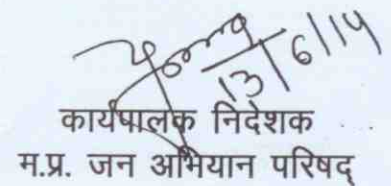 13/6/14
कार्यपालक निदेशक
म.प्र. जन अभियान परिषद्